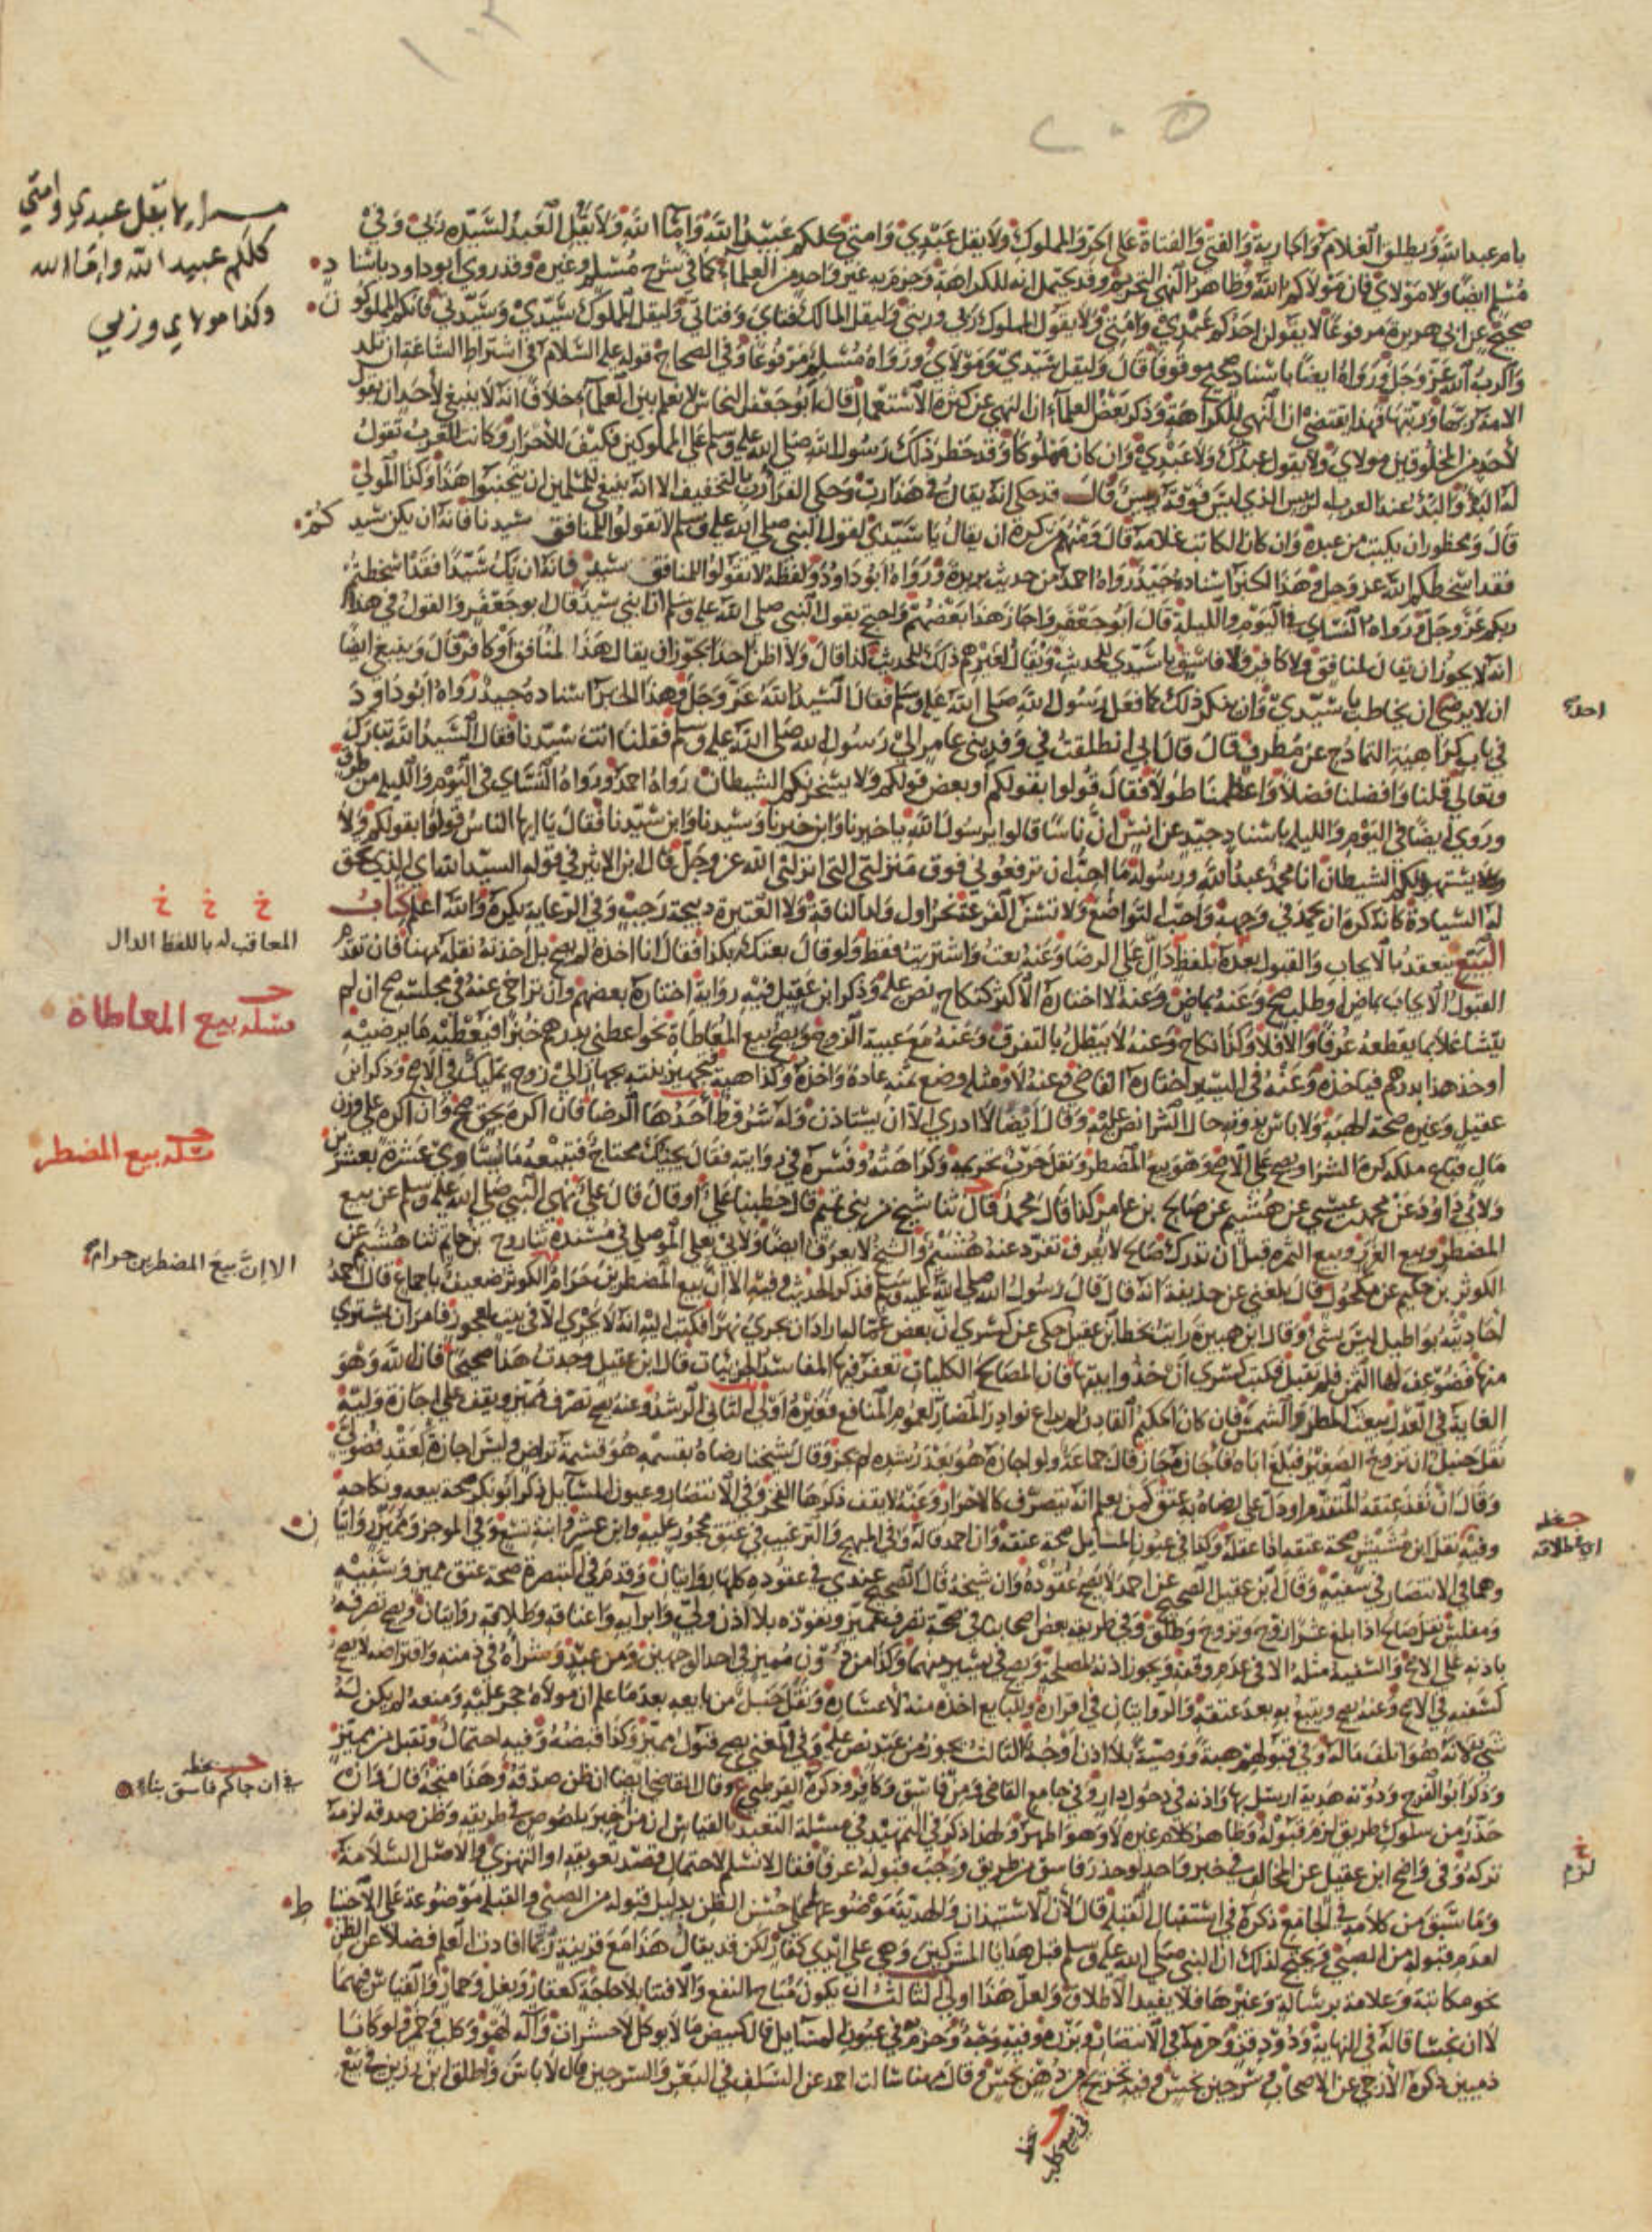 بامر عبد الله ويطلق الغلام والجارية والفتى والفتاة على الحر والمملوك ولا يقل عبدي وامتي كلكم عبيد الله واماء الله ولا يقل العبد لسيده ربي وفي
مسلم ايضا ولا مولاي فان مولاكم الله وظاهر النهي التحريم وقد يحتمل انه للكراهة وجزم به غير واحد من العلماء كما في شرح مسلم وغيره وقد روى ابو داود باسناد
صحيح عن ابي هريرة مرفوعا لا يقولن احدكم عبدي وامتي ولا يقول المملوك ربي وربتي وليقل المالك فتاي وفتاتي وليقل المملوك سيدي وسيدتي فانكم المملوكون
والرب الله عز وجل ورواه ايضا باسناد صحيح موقوفا قال وليقل سيدي ومولاي ورواه مسلم مرفوعا وفي الصحاح قوله عليه السلام في اشتراط الساعة ان تلد
الامة ربها وربتها فهذا يقتضي ان النهي للكراهة وذكر بعض العلماء ان النهي عن كثرة الاستعمال قال ابو جعفر النحاس لا نعلم بين العلماء خلافا انه لا ينبغي لاحد ان يقول
لاحد من المخلوقين مولاي ولا يقول عبدك ولا عبدي وان كان مملوكا وقد حظر ذلك رسول الله صلى الله عليه وسلم على المملوكين فكيف للاحرار وكانت العرب تقول
قال ومحظور ان يكتب من عبده وان كان الكاتب غلامه قال ومنهم من كره ان يقال يا سيدي لقول النبي صلى الله عليه وسلم لا تقولوا للمنافق سيدنا فانه ان يكن سيدكم
فقد اسخطكم الله عز وجل وهذا الخبر اسناده جيد رواه احمد من حديث بريدة ورواه ابو داود ولفظه لا تقولوا للمنافق سيد فانه ان يك سيدا فقد اسخطتم
ربكم عز وجل ورواه النسائي في اليوم والليلة قال ابو جعفر واجاز هذا بعضهم واحتج بقول النبي صلى الله عليه وسلم ان ابني سيد قال ابو جعفر والقول في هذا
انه لا يجوز ان يقال لمنافق ولا كافر ولا فاسق يا سيدي للحديث ويقال لغيرهم ذلك للحديث كذا قال ولا اظن احدا يجوز ان يقال هذا لمنافق او كافر قال وينبغي ايضا
ان لا يرضى ان يخاطب يا سيدي وان ينكر ذلك كما فعل رسول الله صلى الله عليه وسلم فقال السيد الله عز وجل وهذا الخبر اسناده جيد رواه ابو داود
في باب كراهية التمادح عن مطرف قال قال ابي انطلقت في وفد بني عامر الى رسول الله صلى الله عليه وسلم فقلنا انت سيدنا فقال السيد الله تبارك
وتعالى قلنا وافضلنا فضلا واعظمنا طولا فقال قولوا بقولكم او بعض قولكم ولا يستجرينكم الشيطان رواه احمد ورواه النسائي في اليوم والليلة من طرق
وروى ايضا في اليوم والليلة باسناد جيد عن انس ان ناسا قالوا يا رسول الله يا خيرنا وابن خيرنا وسيدنا وابن سيدنا فقال يا ايها الناس قولوا بقولكم ولا
يستهوينكم الشيطان انا محمد عبد الله ورسوله ما احب ان ترفعوني فوق منزلتي التي انزلني الله عز وجل قال ابن الاثير في قوله السيد الله اي الذي تحق
له السيادة كانه كره ان يحمد في وجهه واحب التواضع ولا تسن الفرعة نحر اول ولد الناقة ولا العتيرة ذبيحة رجب وفي الرعاية يكره والله اعلم كتاب
البيع ينعقد بالايجاب والقبول بعده بلفظ دال على الرضا وعنه بعت واشتريت فقط ولو قال بعتك بكذا فقال انا اخذه لم يصح بل اخذته نقله مهنا فان تقدم
القبول الايجاب بماض او طلب صح وعنه بماض وعنه لا اختاره الاكثر كنكاح نص عليه وذكر ابن عقيل فيه رواية اختاره بعضهم وان تراخى عنه في مجلسه صح ان لم
يتشاغلا بما يقطعه عرفا والا فلا وكذا نكاح وعنه لا يبطل بالتفرق وعنه مع غيبة الزوج ويصح بيع المعاطاة نحو اعطني بدرهم خبزا فيعطيه ما يرضيه
او خذ هذا بدرهم فياخذه وعنه في اليسير اختاره القاضي وعنه لا ومثله وضع ثمنه عادة واخذه وكذا هبة فتجهيز بنته بجهاز الى زوج تمليك في الاصح وذكر ابن
عقيل وغيره صحة الهبة ولا باس بذوقه حال الشرا نص عليه وقال ايضا لا ادري الا ان يستاذن وله شروط احدها الرضا فان اكره بحق صح وان اكره على وزن
مال فباع ملكه كره الشرا ويصح على الاصح وهو بيع المضطر ونقل حرب تحريمه وكراهته وفسره في روايته فقال يجيئك محتاج فتبيعه ما يساوي عشرة بعشرين
ولابي داود عن محمد بن عيسى عن هشيم عن صالح بن عامر كذا قال محمد قال ثنا شيخ من بني تميم قال خطبنا علي او قال قال علي نهى النبي صلى الله عليه وسلم عن بيع
المضطر وبيع الغرر وبيع الثمرة قبل ان تدرك صالح لا يعرف تفرد عنه هشيم والشيخ لا يعرف ايضا ولابي يعلى الموصلي في مسنده ثنا روح بن حاتم ثنا هشيم عن
الكوثر بن حكيم عن مكحول قال بلغني عن حذيفة انه قال قال رسول الله صلى الله عليه وسلم فذكر الحديث وفيه الا ان بيع المضطرين حرام الكوثر ضعيف باجماع قال احمد
احاديثه بواطيل ليس بشيء وقال ابن هبيرة رايت بخط ابن عقيل حكى عن كسرى ان بعض عماله اراد ان يجري نهرا فكتب اليه انه لا يجري الا في بيت لعجوز فامر ان يشترى
منها فضوعف لها الثمن فلم تقبل فكتب كسرى ان خذوا بيتها فان المصالح الكليات تغفر فيها المفاسد الجزئيات قال ابن عقيل وجدت هذا صحيحا فان الله وهو
الغاية في العدل يبعث المطر والشمس فان كان الحكيم القادر لم يراع نوادر المضار لعموم المنافع فغيره اولى الثاني الرشد وعنه يصح تصرف مميز ويقف على اجازة وليه
نقل حنبل ان تزوج الصغير فبلغ اباه فاجازه جاز قال جماعة ولو اجازه هو بعد رشده لم يجز وقال شيخنا رضاه بقسمه هو قسمة تراض وليس اجازة لعقد فضولي
وقال ان نفذ عتقه المتقدم او دل على رضاه به عتق كمن يعلم انه يتصرف كالاحرار وعنه لا يقف ذكرها الفخر وفي الانتصار وعيون المسائل ذكر ابو بكر صحة بيعه ونكاحه
وفيه نقل ابن مشيش صحة عتقه اذا عقله وكذا في عيون المسائل صحة عتقه وان احمد قاله وفي المبهج والترغيب في عتق محجور عليه وابن عشر وابنة تسع وفي الموجز ومميز روايتان
وهما في الانتصار في سفيه وقال ابن عقيل الصحيح عن احمد لا يصح عقوده وان شيخه قال الصحيح عندي في عقوده كلها روايتان وقدم في التبصرة صحة عتق مميز وسفيه
ومفلس نقل صالح اذا بلغ عشرا زوج وتزوج وطلق وفي طريقة بعض اصحابنا في صحة تصرف مميز ونفوذه بلا اذن ولي وابرائه واعتاقه وطلاقه روايتان ويصح تصرفه
باذنه على الاصح والسفيه مثله الا في عدم وقفه ويجوز اذنه لمصلحة ويصح في يسير منهما وكذا من دون مميز في احد الوجهين ومن عبد وشراه في ذمته واقتراضه لا يصح
كسفيه في الاصح وعنه يصح ويتبع به بعد عتقه والروايتان في اقراره وللبايع اخذه منه لاعساره ونقل حنبل من بايعه بعد ما علم ان مولاه حجر عليه ومنعه لم يكن له
شي لانه هو اتلف ماله وفي قبولهم هبة ووصية بلا اذن اوجه الثالث يجوز من عبد نص عليه وفي المغني يصح قبول مميز وكذا قبضه وفيه احتمال وتقبل من مميز
وذكر ابو الفرج ودونه هدية ارسل بها واذنه في دخول دار وفي جامع القاضي ومن فاسق وكافر وذكره القرطبي ع وقال القاضي ايضا ان ظن صدقه وهذا متجه قال وان
حذر من سلوك طريق لزم قبوله وظاهر كلام غيره لا وهو اظهر ولهذا ذكر في التمهيد في مسئلة التعبد بالقياس ان من اخبر بلصوص في طريقه وظن صدقه لزمه
تركه وفي واضح ابن عقيل عن المخالف في خبر واحد لو حذر فاسق من طريق وجب قبوله عرفا فقال لا نسلم لاحتمال قصد تعويقه او التهزي والاصل السلامة
وما سبق من كلامه في الجامع ذكره في استقبال القبلة قال لان الاستيذان والهدية موضوعها على حسن الظن بدليل قبوله من الصبي والقبلة موضوعة على الاحتياط
لعدم قبوله من الصبي ويحتج لذلك ان النبي صلى الله عليه وسلم قبل هدايا المشركين وهي على ايدي كفار لكن قد يقال هذا مع قرينة ربما افادت العلم فضلا عن الظن
نحو مكاتبة وعلامة برسالة وغيرها فلا يفيد الاطلاق ولعل هذا اولى الثالث ان يكون مباح النفع والاقتنا بلا حاجة كعقار وبغل وحمار والقياس فيهما
لا ان نجسا قاله في النهاية ودود قز وحرمه في الانتصار وبزره وفيه وجه وجزم في عيون المسائل قال كبيض ما لا يوكل لا حشرات وآلة لهو وكلب وخمر ولو كانا
ذميين ذكره الازجي عن الاصحاب وسرجين نجس وفيه تخريج من دهن نجس وقال مهنا سالت احمد عن السلف في البعر والسرجين قال لا باس واطلق ابن رزين في بيع
لا يقل عبدي وامتي
كلكم عبيد الله واماء الله
وكذا مولاي وربي
احد
خ خ خ
المعاقب له باللفظ الدال
مسئلة بيع المعاطاة
مسئلة بيع المضطر
الا ان بيع المضطرين حرام
اي طلاقه
في ان حاكم فاسق بناء
لزم